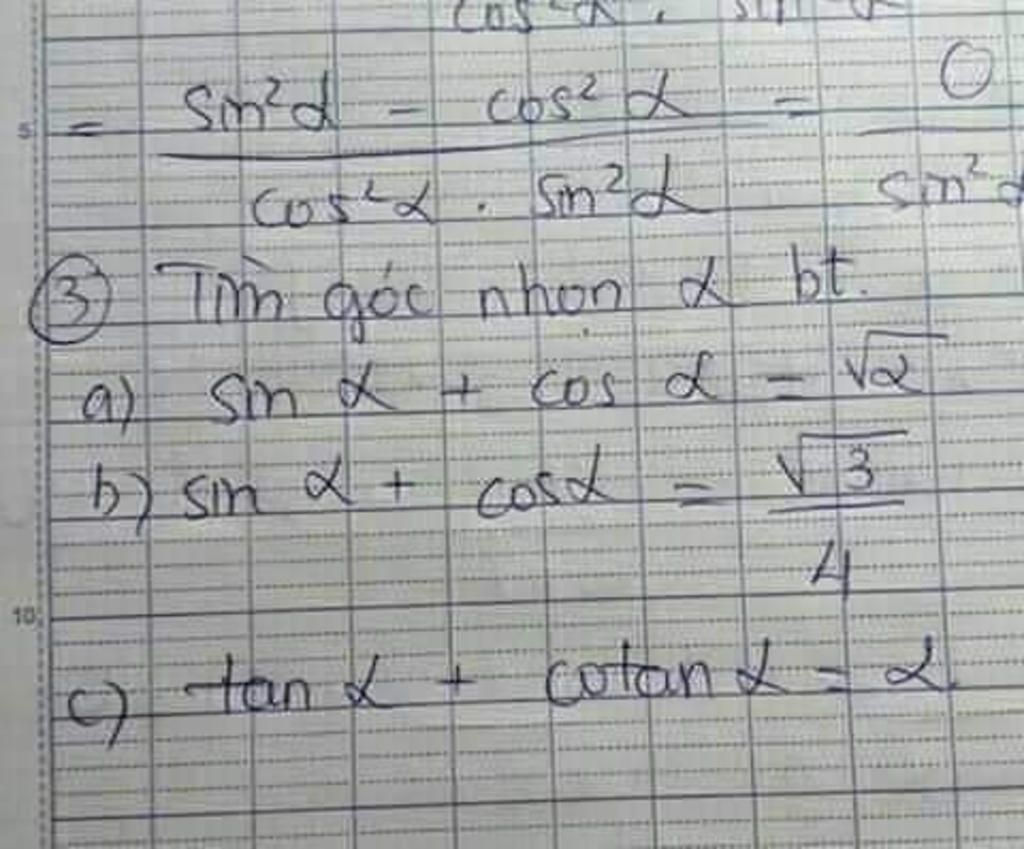 cos²α . sin²α
5
= sin²α - cos²α / cos²α . sin²α = 0 / sin²α
③ Tìm góc nhọn α bt.
a) sin α + cos α = √2
b) sin α + cosα = √3 / 4
10
c) tan α + cotan α = 2